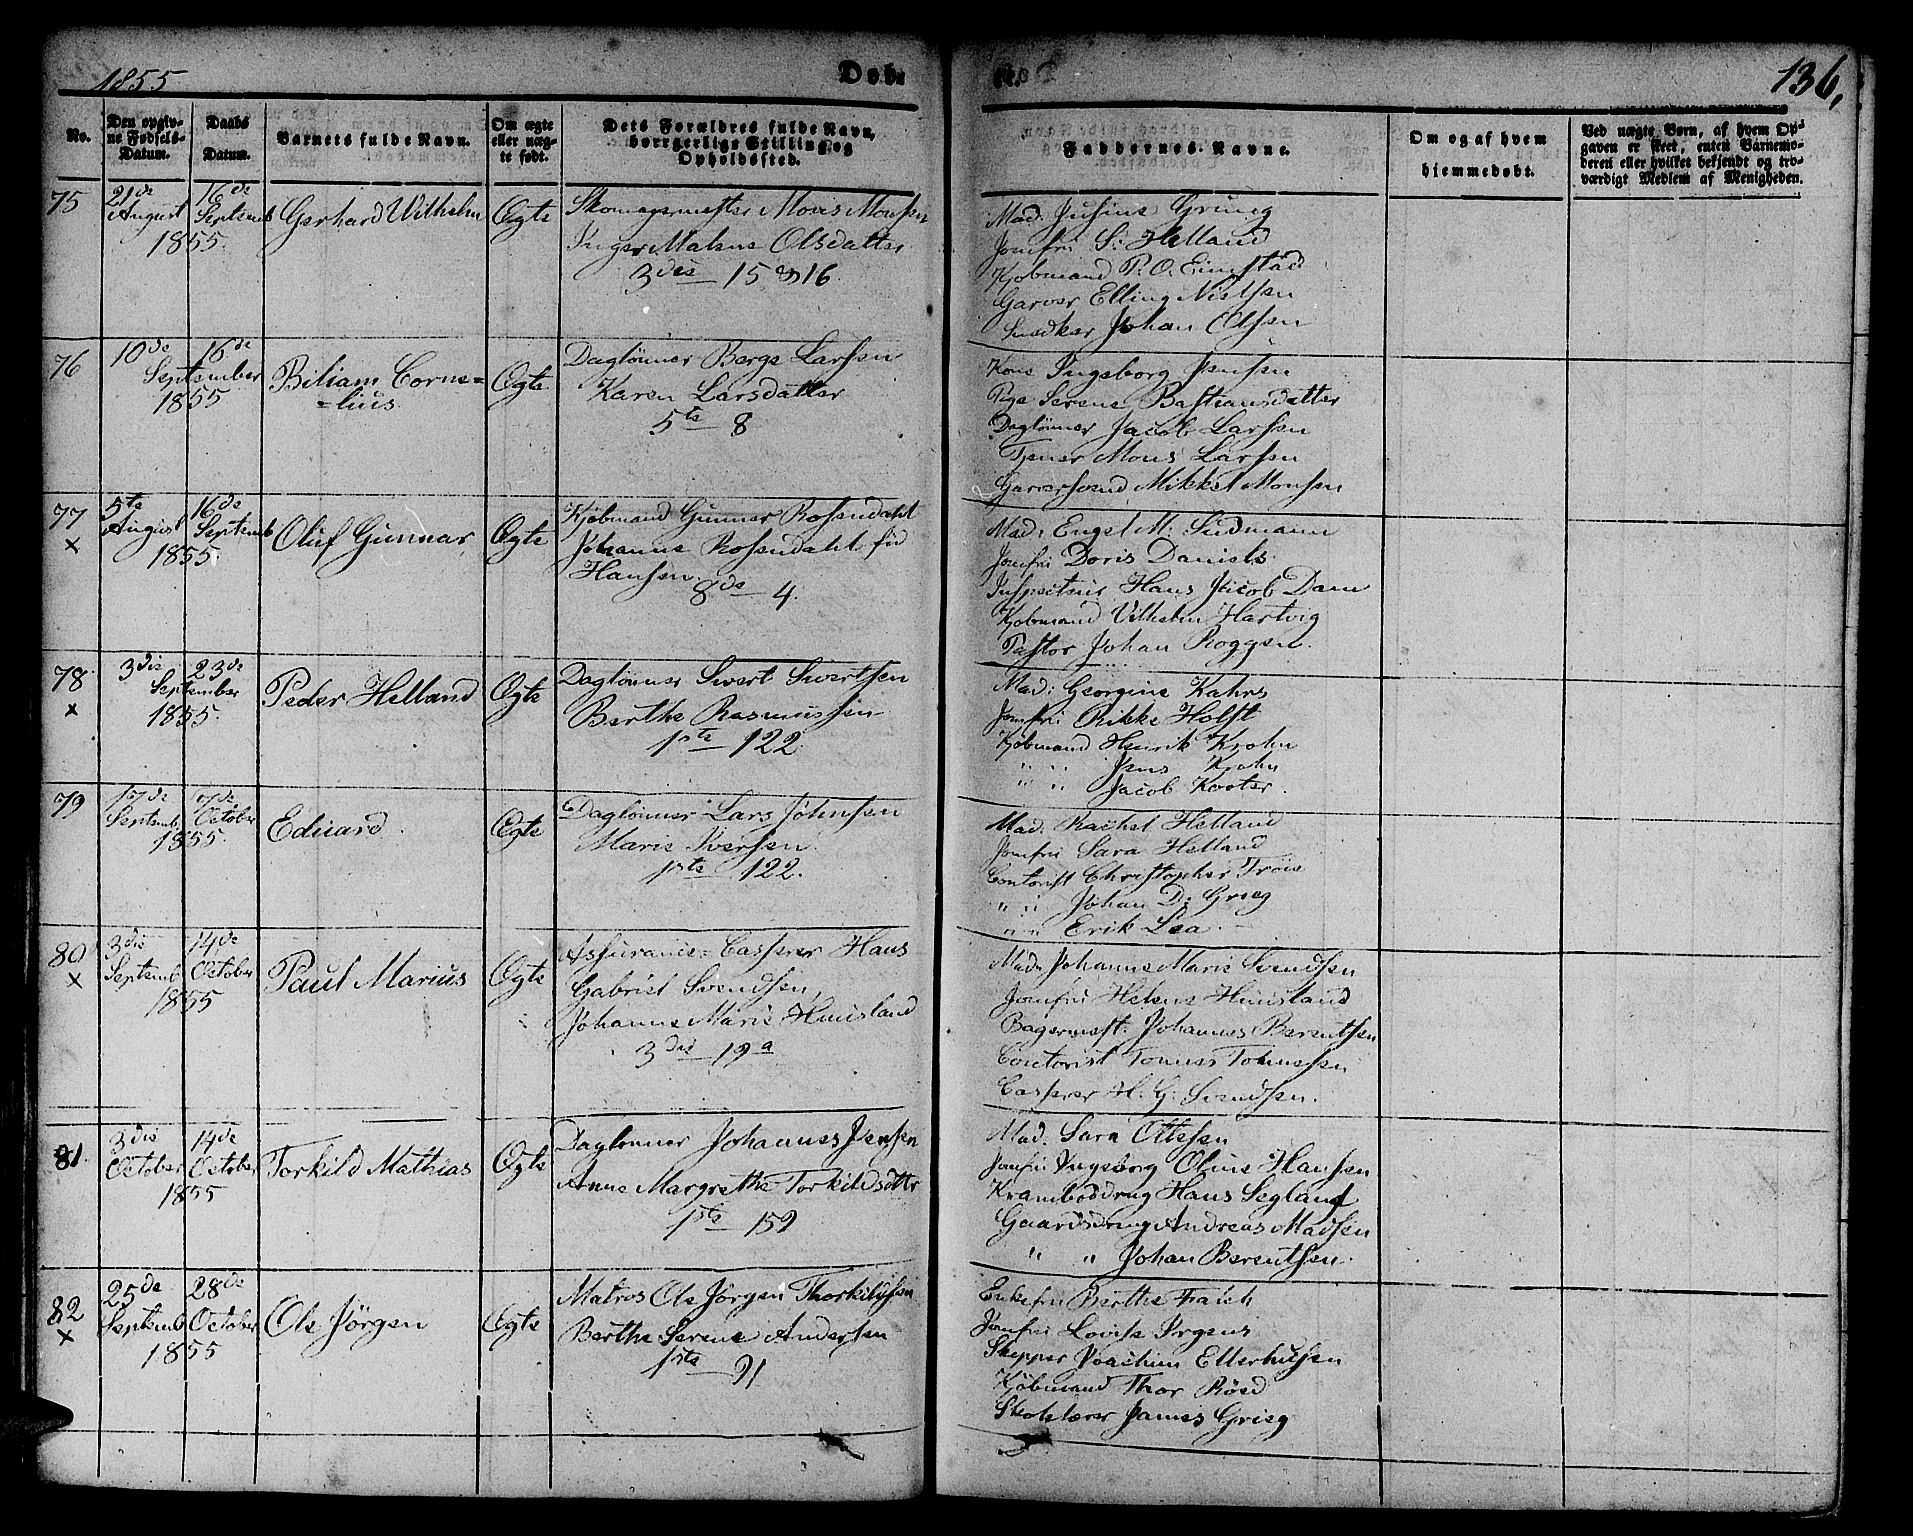 1855
Døbt
136,
No.
Den opgiv-
ne Fødsels-
Datum.
Daabs
Datum.
Barnets fulde Navn.
Om ægte
eller uæg-
te født.
Dets Forældres fulde Navn,
borgerlige Stilling og
Opholdssted.
Faddernes Navne.
Om og af hvem
hjemmedøbt.
Ved uægte Børn, af hvem Op-
gaven er skeet, enten Barnemo-
deren eller hvilket bekjendt og tro-
værdigt Medlem af Menigheden.
75
21de
August
16de
Septemb
1855.
Gerhard Wilhelm
Ægte
Skomagermester Mons Monsen
Inger Malene Olsdatter
3die 15 & 16.
Mad. Justine Grung
Jomfru S. Helland
Kjøbmand P. O. Eingstad
Garver Elling Nielsen
Snedker Johan Olsen
76
10de 16de
September
1855
Biliam Corne=
=lius.
Ægte
Daglønner Berge Larsen
Karen Larsdatter
5te 8
Kone Ingeborg Jensen
Pige Serene Bastiansdatter
Daglønner Jacob Larsen
Tjener Mons Larsen
Garversvend Mikkel Monsen
77
×
5te
August
16de
Septemb
1855.
Oluf Gunnar,
Ægte
Kjøbmand Gunner Rosendahl
Johanne Rosendahl fød
Hansen.
8de 4.
Mad. Engel M. Sudmann
Jomfru Doris Daniels.
Inspecteur Hans Jacob Dam
Kjøbmand Vilhelm Hartvig
Pastor Johan Roggen.
78.
×
3die 23de
September
1855.
Peder Helland
Ægte
Daglønner Sivert Sivertsen
Berthe Rasmussen
1ste 122
Mad: Georgine Kahrs
Jomfru Rikke Holst
Kjøbmand Henrik Krohn
" " Jens Krohn
" " Jacob Kooter.
79
17de
Septemb
7de
October
1855.
Eduard.
Ægte
Daglønner Lars Johnsen
Marie Iversen.
1ste 122.
Mad. Rachel Helland
Jomfru Sara Helland
Contorist Christopher Troie
" " Johan D. Grieg
" " Erik Lea.
80
×
3die
Septemb
14de
October
1855
Paul Marius
Ægte
Assurance=Casserer Hans
Gabriel Svendsen,
Johanne Marie Huusland
3die 19a
Mad. Johanne Marie Svendsen
Jomfru Helene Huusland
Bagermest: Johannes Berentsen
Contorist Tomas Tohmesen
Casserer H. G. Svendsen.
81.
3die
October
14de
October
1855
Torkild Mathias
Ægte
Daglønner Johannes Jensen
Anne Margrethe Torkildsdttr
1ste 159
Mad. Sara Ottesen
Jomfru Ingeborg Oline Hansen
Kramboddreng Hans Segland
Gaardsdreng Andreas Madsen
" " Johan Berentsen.
82
×
25de
Septemb
28de
October
1855
Ole Jörgen
Ægte
Matros Ole Jørgen Thorkildsen
Berthe Serene Andersen
1ste 91
Enkefru Berthe Faleh
Jomfru Lovise Irgens
Skipper Joachim Ellerhusen
Kjøbmand Thor Röed
Skolelærer James Grieg